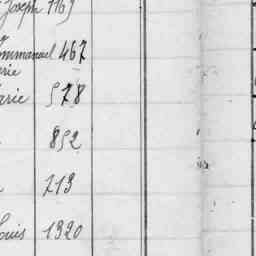 Joseph 1169
Emmanuel 467
Marie 578
852
713
Louis 1320